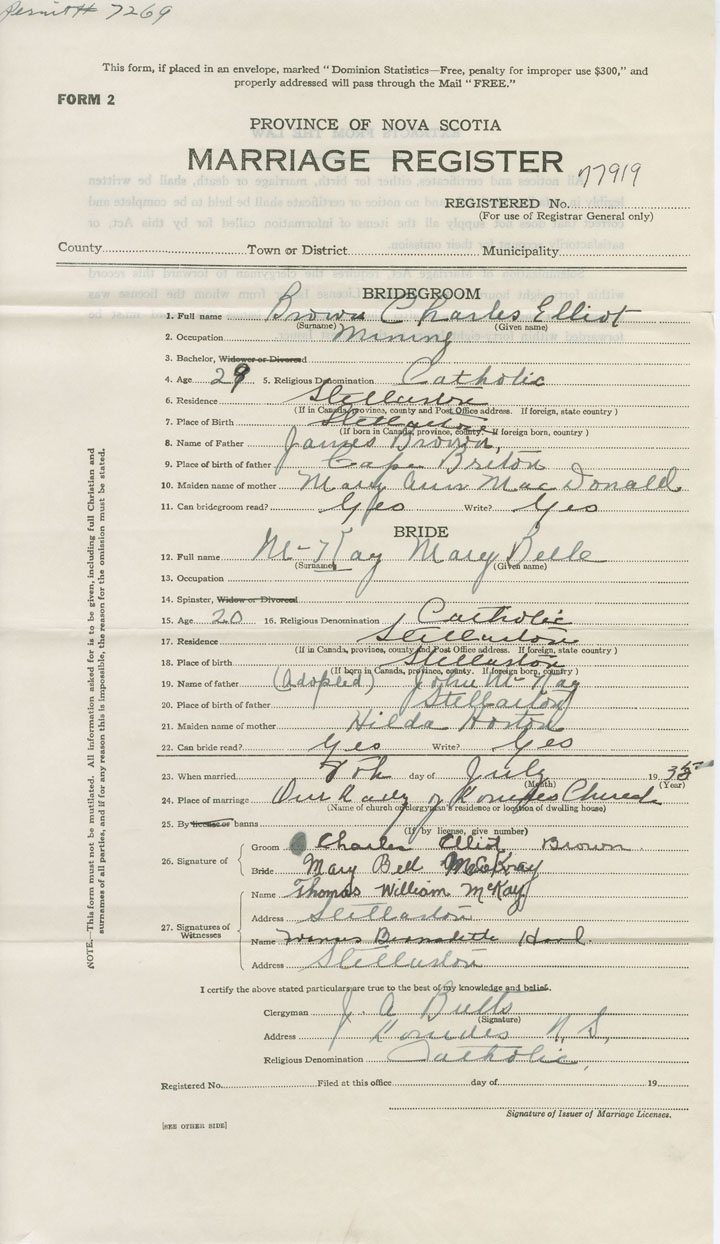 Permit # 7269
This form, if placed in an envelope, marked "Dominion Statistics—Free, penalty for improper use $300," and
properly addressed will pass through the Mail "FREE."
FORM 2
PROVINCE OF NOVA SCOTIA
MARRIAGE REGISTER 77919
REGISTERED No.
(For use of Registrar General only)
County Town or District Municipality
BRIDEGROOM
1. Full name Brown Charles Elliot
(Surname) (Given name)
2. Occupation Mining
3. Bachelor, Widower or Divorced
4. Age 29 5. Religious Denomination Catholic
6. Residence Stellarton
(If in Canada, province, county and Post Office address. If foreign, state country)
7. Place of Birth Stellarton
(If born in Canada, province, county. If foreign born, country)
8. Name of Father James Brown,
9. Place of birth of father Cape Briton
10. Maiden name of mother Mary Ann MacDonald
11. Can bridegroom read? Yes Write? Yes
BRIDE
12. Full name McKay Mary Belle
(Surname) (Given name)
13. Occupation
14. Spinster, Widow or Divorced
15. Age 20 16. Religious Denomination Catholic
17. Residence Stellarton
(If in Canada, province, county and Post Office address. If foreign, state country)
18. Place of birth Stellarton
(If born in Canada, province, county. If foreign born, country)
19. Name of father (Adopted) John McKay
20. Place of birth of father Stellarton
21. Maiden name of mother Hilda Horton
22. Can bride read? Yes Write? Yes
23. When married 8th day of July 1935
(Month) (Year)
24. Place of marriage Our Lady of Lourdes Church
(Name of church or clergyman's residence or location of dwelling house)
25. By license or banns
(If by license, give number)
26. Signature of
Groom Charles Elliot Brown
Bride Mary Bell McKay
27. Signatures of Witnesses
Name Thomas William McKay
Address Stellarton
Name Bernadette
Address Stellarton
I certify the above stated particulars are true to the best of my knowledge and belief.
Clergyman J. A. Butts
(Signature)
Address Lourdes N. S.,
Religious Denomination Catholic,
Registered No. Filed at this office day of 19
Signature of Issuer of Marriage Licenses.
[SEE OTHER SIDE]
NOTE.—This form must not be mutilated. All information asked for is to be given, including full Christian and
surnames of all parties, and if for any reason this is impossible, the reason for the omission must be stated.